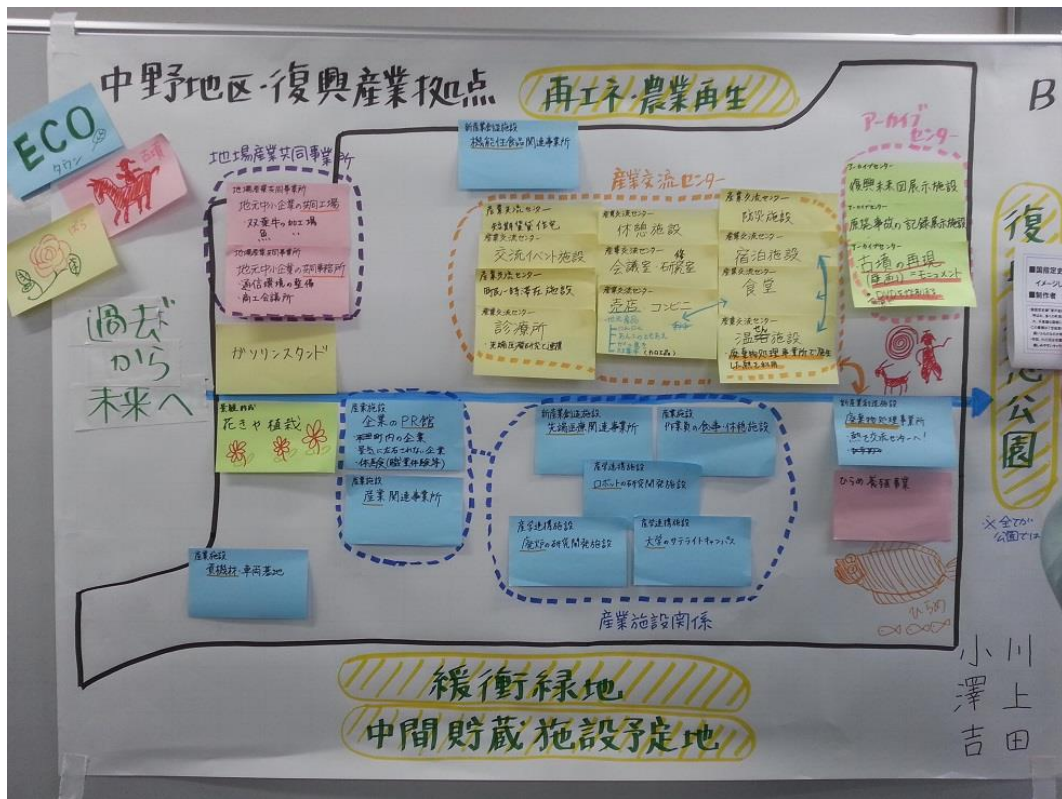 中野地区・復興産業拠点
再エネ・農業再生
B
ECO
タウン
古墳
ばら
過去
から
未来へ
地場産業共同事業所
地場産業共同事業所
地元中小企業の共同工場
・双葉牛の加工場
魚 〃
地場産業共同事業所
地元中小企業の共同事務所
・通信環境の整備
・商工会議所
ガソリンスタンド
花きや植栽
新産業創造施設
機能性食品関連事業所
産業交流センター
産業交流センター
短期賃貸住宅
産業交流センター
交流イベント施設
産業交流センター
町民一時滞在施設
産業交流センター
診療所
・先端医療研究と連携
産業交流センター
休憩施設
産業交流センター
会議室・研究室
産業交流センター
売店 コンビニ
(加工品)
産業交流センター
防災施設
産業交流センター
宿泊施設
産業交流センター
食堂
産業交流センター
温浴施設
・廃棄物処理事業所で発生
した熱を利用
アーカイブ
センター
アーカイブセンター
復興未来図展示施設
アーカイブセンター
原発事故の記録展示施設
アーカイブセンター
古墳の再現
(壁画) =モニュメント
産業施設
企業のPR館
町内の企業
景気に左右されない企業
・体験食(職業体験等)
産業施設
産業関連事業所
産業施設
重機材・車両基地
新産業創造施設
先端医療関連事業所
作業員の食事・休憩施設
産学連携施設
ロボットの研究開発施設
産学連携施設
廃炉の研究開発施設
産学連携施設
大学のサテライトキャンパス
産業施設関係
新産業創造施設
廃棄物処理事業所
熱を交流センターへ!
ひらめ養殖事業
ひらめ
緩衝緑地
中間貯蔵施設予定地
公園
※全てが
公園では
川上田
小澤吉
■国指定史
イメージし
■制作者